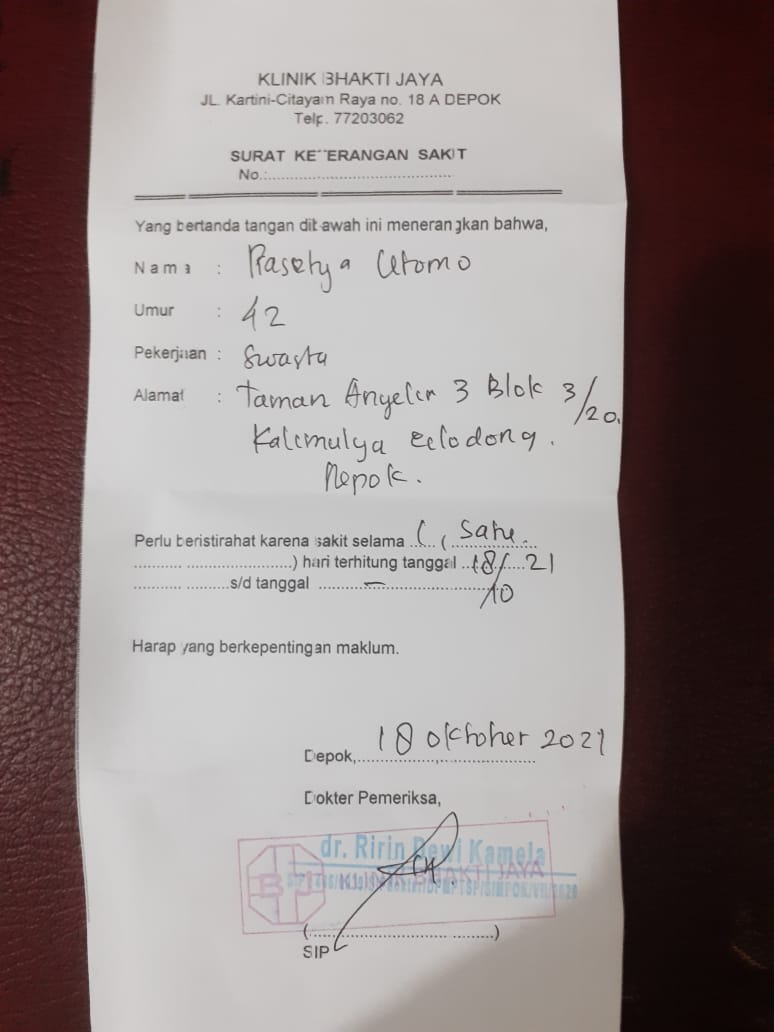 KLINIK BHAKTI JAYA
JL. Kartini-Citayam Raya no. 18 A DEPOK
Telp. 77203062
SURAT KETERANGAN SAKIT
No.:..........................................
Yang bertanda tangan dibawah ini menerangkan bahwa,
Nama : Prasetya Utomo
Umur : 42
Pekerjaan : Swasta
Alamat : Taman Anyelir 3 Blok 3/20.
Kalimulya Cilodong.
Depok.
Perlu beristirahat karena sakit selama ..... ( Satu
........... ......................) hari terhitung tanggal 18/10 21
........... .........s/d tanggal ....–..............................
Harap yang berkepentingan maklum.
Depok, 18 Oktober 2021
Dokter Pemeriksa,
dr. Ririn Dewi Kamela
KLINIK BHAKTI JAYA
(................................ .........)
SIP